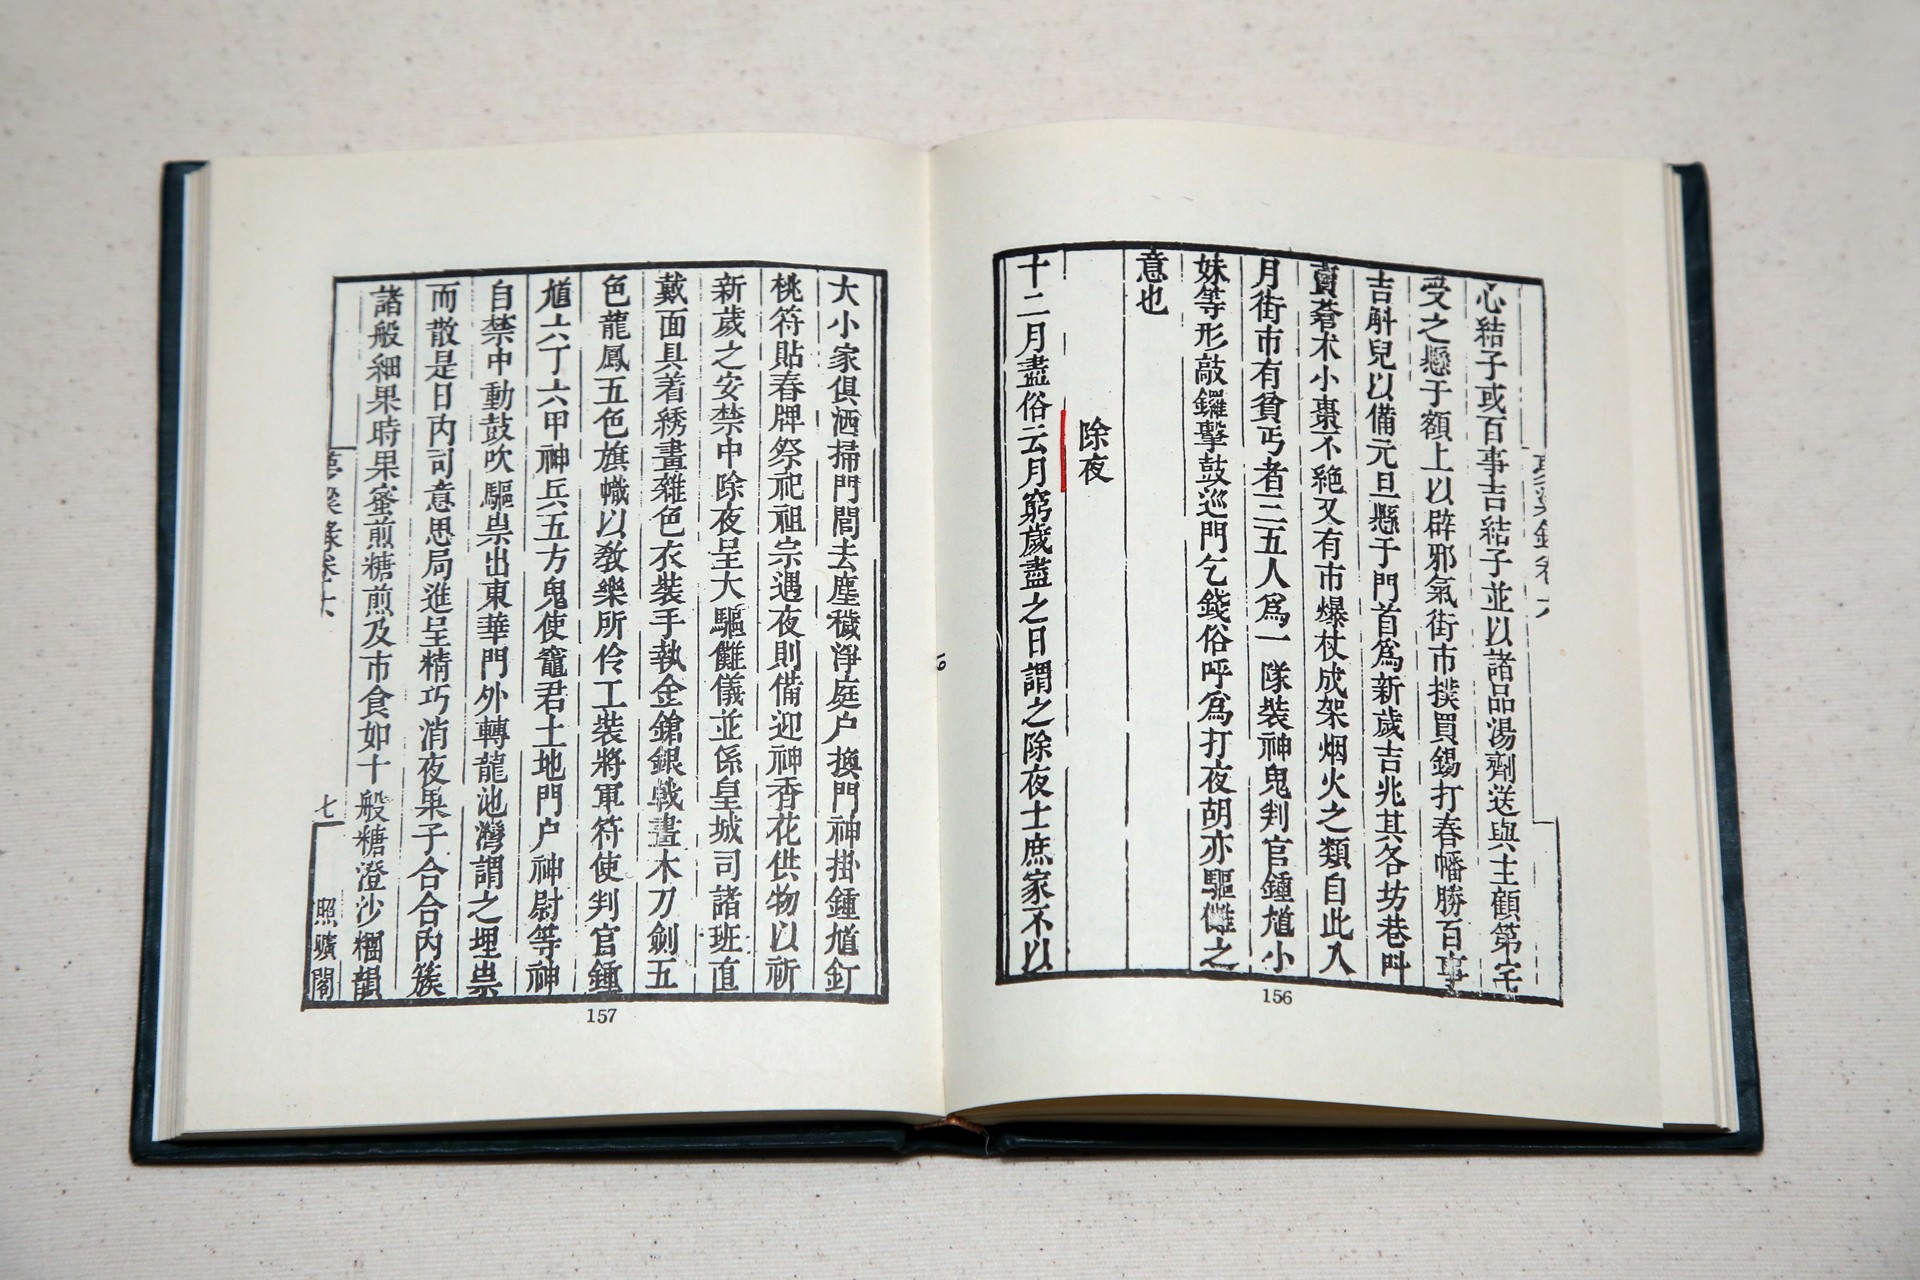 心結子或百事吉結子並以諸品湯劑送與主顧第宅
受之懸于額上以辟邪氣街市撲買錫打春幡勝百事
吉斛兒以備元旦懸于門首為新歲吉兆其各坊巷叫
賣蒼术小棗不絕又有市爆杖成架烟火之類自此入
月街市有貧丐者三五人為一隊裝神鬼判官鍾馗小
妹等形敲鑼擊鼓巡門乞錢俗呼為打夜胡亦驅儺之
意也
除夜
十二月盡俗云月窮歲盡之日謂之除夜士庶家不以
156
大小家俱洒掃門閭去塵穢淨庭户換門神掛鍾馗釘
桃符貼春牌祭祀祖宗遇夜則備迎神香花供物以祈
新歲之安禁中除夜呈大驅儺儀並係皇城司諸班直
戴面具着綉畫雜色衣裝手執金鎗銀戟畫木刀劍五
色龍鳳五色旗幟以教樂所伶工裝將軍符使判官鍾
馗六丁六甲神兵五方鬼使竈君土地門户神尉等神
自禁中動鼓吹驅祟出東華門外轉龍池灣謂之埋祟
而散是日内司意思局進呈精巧消夜果子合合内簇
諸般細果時果蜜煎糖煎及市食如十般糖澄沙糰韻
七
照曠閣
157